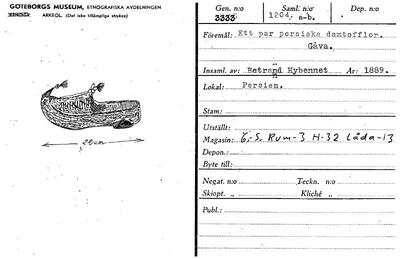 GÖTEBORGS MUSEUM, ETNOGRAFISKA AVDELNINGEN
ARKEOL. (Det icke tillämpliga strykes)
Gen. n:o 3333
Saml. n:o 1204, a-b.
Dep. n:o
Föremål: Ett par persiska damtofflor.
Gåva.
Insaml. av: Betrand Hybennet År: 1889.
Lokal: Persien.
Stam:
Utställt:
Magasin: 6-S. Rum-3 H-32 Låda-13
Depon.:
Byte till:
Negat. n:o Teckn. n:o
Skiopt. „ Kliché „
Publ.: